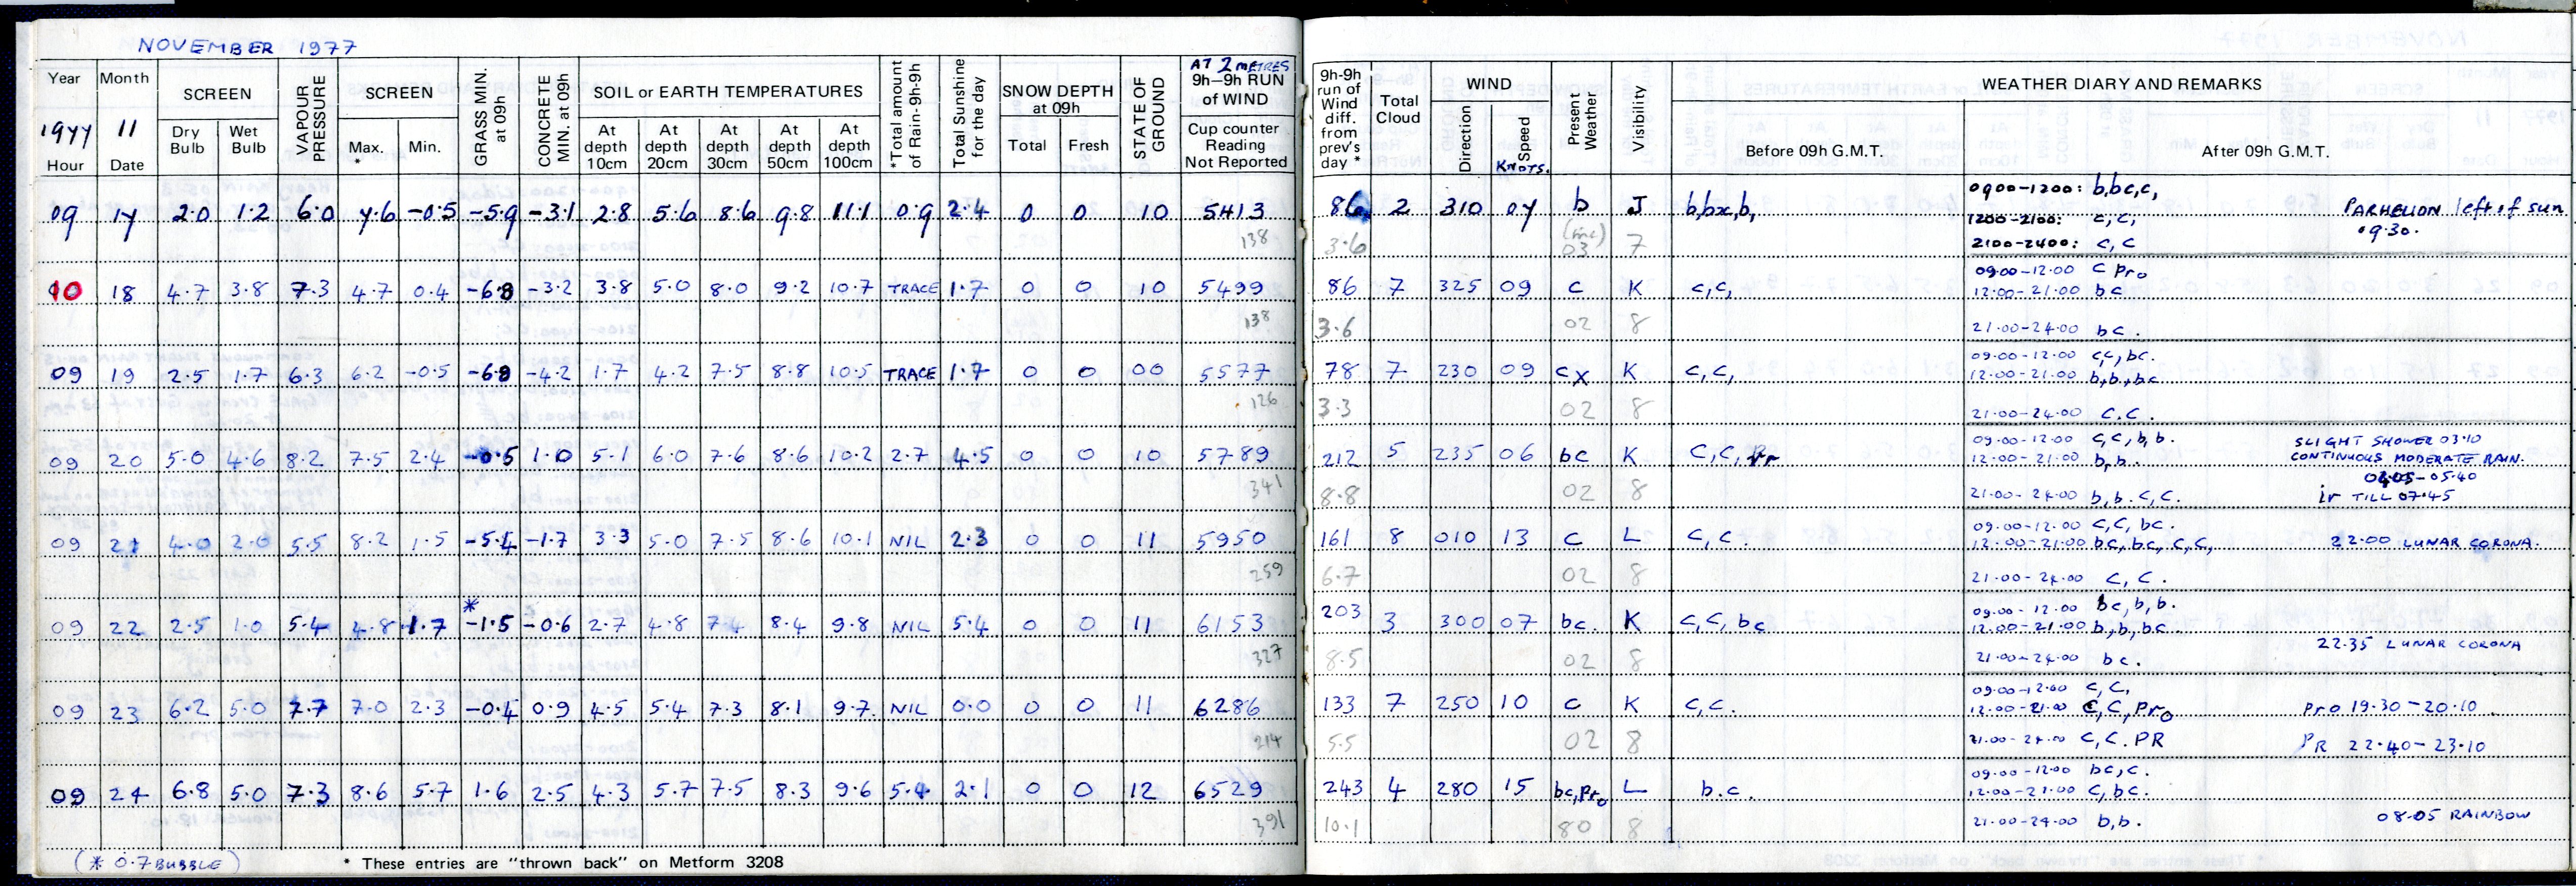 NOVEMBER 1977
Year Month SCREEN VAPOUR PRESSURE SCREEN GRASS MIN. at 09h CONCRETE MIN. at 09h SOIL or EARTH TEMPERATURES *Total amount of Rain-9h-9h Total Sunshine for the day SNOW DEPTH at 09h STATE OF GROUND AT 2 METRES 9h-9h RUN of WIND
1977 11 Dry Bulb Wet Bulb Max. * Min. At depth 10cm At depth 20cm At depth 30cm At depth 50cm At depth 100cm Total Fresh Cup counter Reading Not Reported
Hour Date
09 17 2.0 1.2 6.0 7.6 -0.5 -5.9 -3.1 2.8 5.6 8.6 9.8 11.1 0.9 2.4 0 0 10 5413
138
10 18 4.7 3.8 7.3 4.7 0.4 -6.8 -3.2 3.8 5.0 8.0 9.2 10.7 TRACE 1.7 0 0 10 5499
138
09 19 2.5 1.7 6.3 6.2 -0.5 -6.8 -4.2 1.7 4.2 7.5 8.8 10.5 TRACE 1.7 0 0 00 5577
126
09 20 5.0 4.6 8.2 7.5 2.4 -0.5 1.0 5.1 6.0 7.6 8.6 10.2 2.7 4.5 0 0 10 5789
341
09 21 4.0 2.0 5.5 8.2 1.5 -5.4 -1.7 3.3 5.0 7.5 8.6 10.1 NIL 2.3 0 0 11 5950
259
*
09 22 2.5 1.0 5.4 4.8 1.7 -1.5 -0.6 2.7 4.8 7.4 8.4 9.8 NIL 5.4 0 0 11 6153
327
09 23 6.2 5.0 7.7 7.0 2.3 -0.4 0.9 4.5 5.4 7.3 8.1 9.7 NIL 0.0 0 0 11 6286
214
09 24 6.8 5.0 7.3 8.6 5.7 1.6 2.5 4.3 5.7 7.5 8.3 9.6 5.4 2.1 0 0 12 6529
391
(* 0.7 BUBBLE)
* These entries are "thrown back" on Metform 3208
9h-9h run of Wind diff. from prev's day * Total Cloud WIND Present Weather Visibility WEATHER DIARY AND REMARKS
Direction Speed KNOTS. Before 09h G.M.T. After 09h G.M.T.
86 2 310 07 b J b,bx,b, 0900-1200: b,bc,c, PARHELION left of sun
1200-2100: c,c, 09.30.
3.6 03 7 2100-2400: c,c
86 7 325 09 c K c,c, 09.00-12.00 c pro
12.00-21.00 bc
3.6 02 8 21.00-24.00 bc.
78 7 230 09 cx K c,c, 09.00-12.00 c,c, bc.
12.00-21.00 b,b,bc
3.3 02 8 21.00-24.00 c.c.
212 5 235 06 bc K c,c, rr 09.00-12.00 c,c,b,b. SLIGHT SHOWER 03.10
12.00-21.00 b,b. CONTINUOUS MODERATE RAIN.
04.05-05.40
8.8 02 8 21.00-24.00 b,b.c,c. ir TILL 07.45
161 8 010 13 c L c,c. 09.00-12.00 c,c, bc.
12.00-21.00 bc,bc,c,c, 22.00 LUNAR CORONA.
6.7 02 8 21.00-24.00 c,c.
203 3 300 07 bc. K c,c, bc 09.00-12.00 bc,b,b.
12.00-21.00 b,b,bc.
22.35 LUNAR CORONA
8.5 02 8 21.00-24.00 bc.
133 7 250 10 c K c,c. 09.00-12.00 c,c,
12.00-21.00 c,c,pro pro 19.30-20.10
5.5 02 8 21.00-24.00 c,c.PR PR 22.40-23.10
243 4 280 15 bc,pro L b.c. 09.00-12.00 bc,c.
12.00-21.00 c,bc.
10.1 80 8 21.00-24.00 b,b. 08.05 RAINBOW